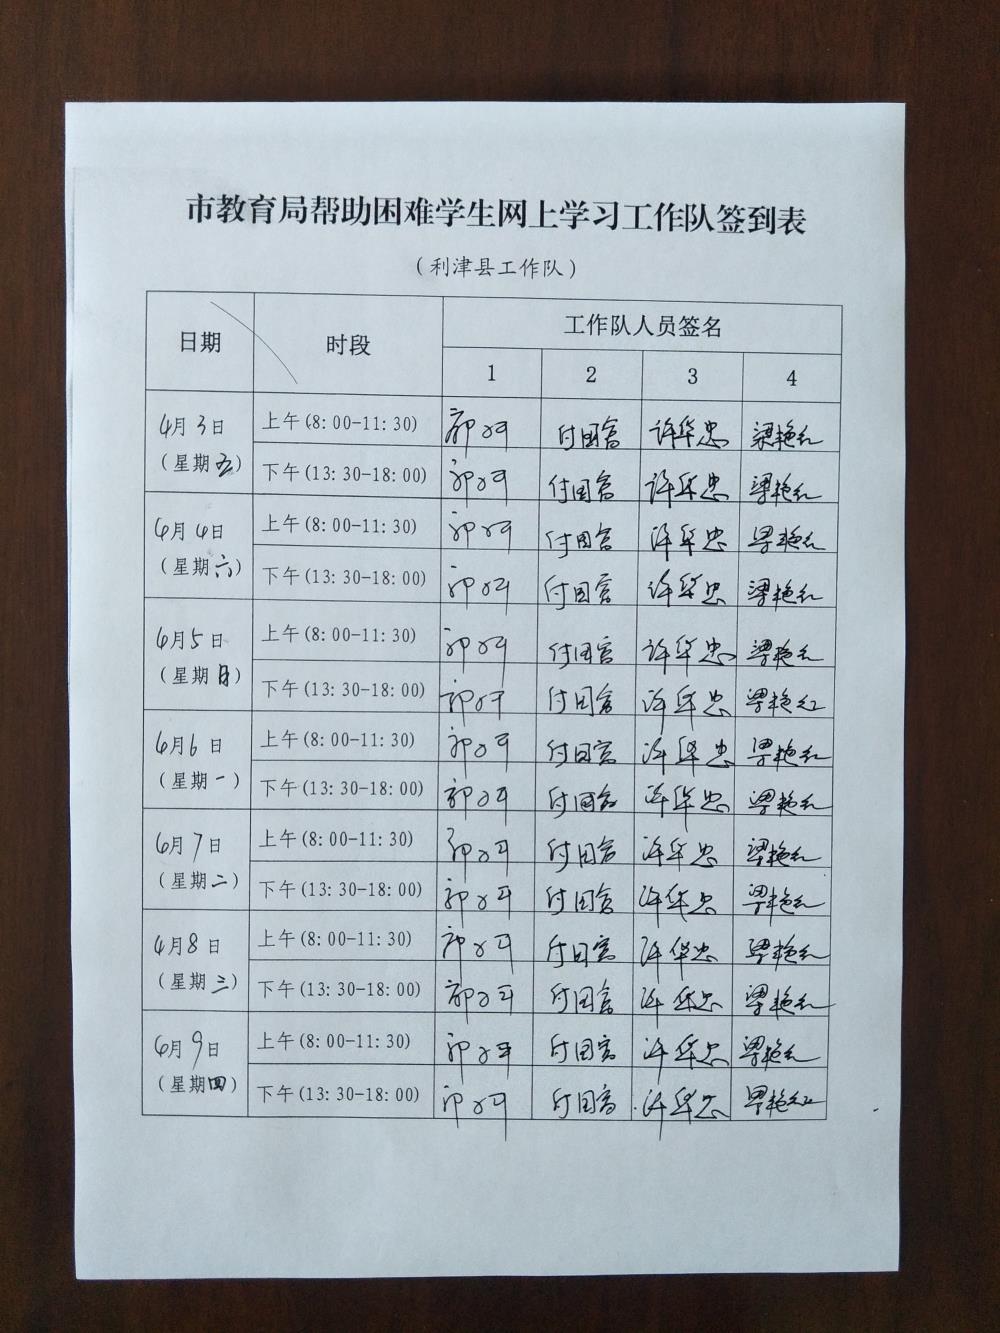 市教育局帮助困难学生网上学习工作队签到表
（利津县工作队）
日期 时段 工作队人员签名
1 2 3 4
4月3日
（星期五）
上午(8:00-11:30) 付国富 许华忠 梁艳红
下午(13:30-18:00) 付国富 许华忠 梁艳红
4月4日
（星期六）
上午(8:00-11:30) 付国富 许华忠 梁艳红
下午(13:30-18:00) 付国富 许华忠 梁艳红
4月5日
（星期日）
上午(8:00-11:30) 付国富 许华忠 梁艳红
下午(13:30-18:00) 付国富 许华忠 梁艳红
4月6日
（星期一）
上午(8:00-11:30) 付国富 许华忠 梁艳红
下午(13:30-18:00) 付国富 许华忠 梁艳红
4月7日
（星期二）
上午(8:00-11:30) 付国富 许华忠 梁艳红
下午(13:30-18:00) 付国富 许华忠 梁艳红
4月8日
（星期三）
上午(8:00-11:30) 付国富 许华忠 梁艳红
下午(13:30-18:00) 付国富 许华忠 梁艳红
4月9日
（星期四）
上午(8:00-11:30) 付国富 许华忠 梁艳红
下午(13:30-18:00) 付国富 许华忠 梁艳红